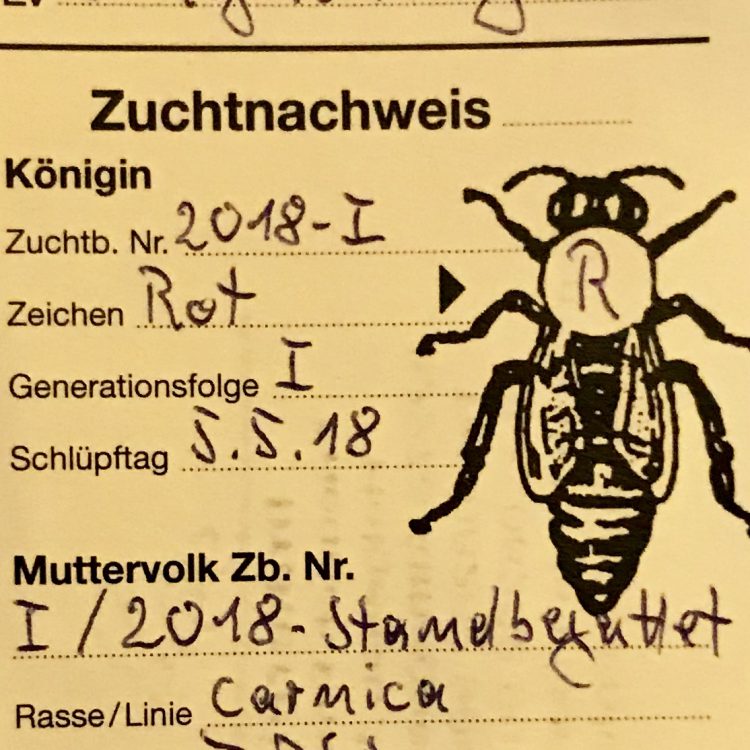 Zuchtnachweis
Königin
Zuchtb. Nr. 2018-I
Zeichen Rot
R
Generationsfolge I
Schlüpftag 5.5.18
Muttervolk Zb. Nr.
I / 2018-Standbegattet
Rasse/Linie Carnica